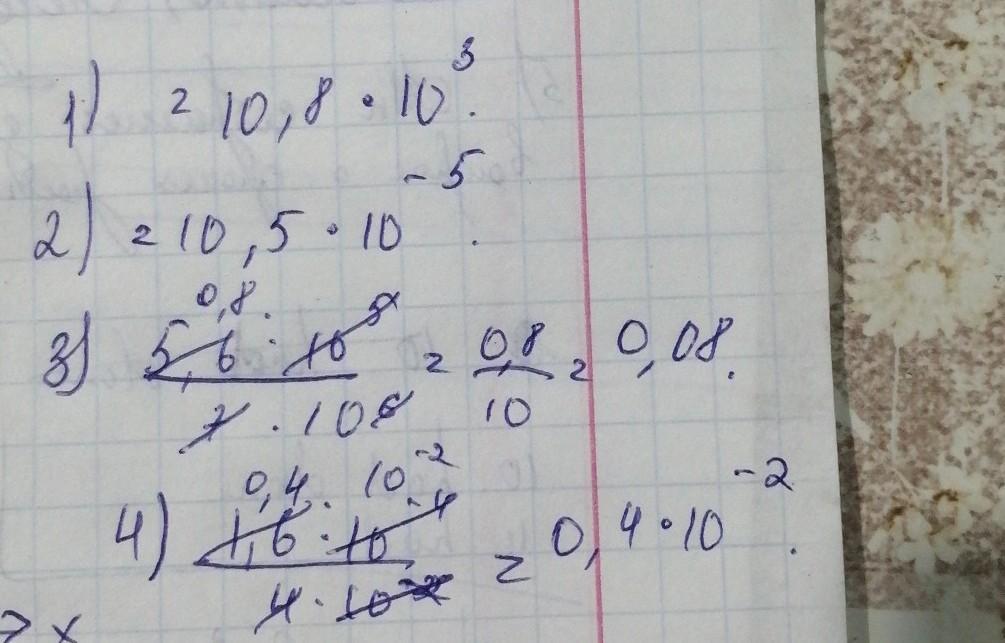 1) = 10,8 · 10³.
2) = 10,5 · 10⁻⁵.
0,8.
3) 5,6 · 10⁵ / 7 · 10⁶ = 0,8 / 10 = 0,08.
0,4 · 10⁻²
4) 1,6 · 10⁻⁴ / 4 · 10⁻² = 0,4 · 10⁻².